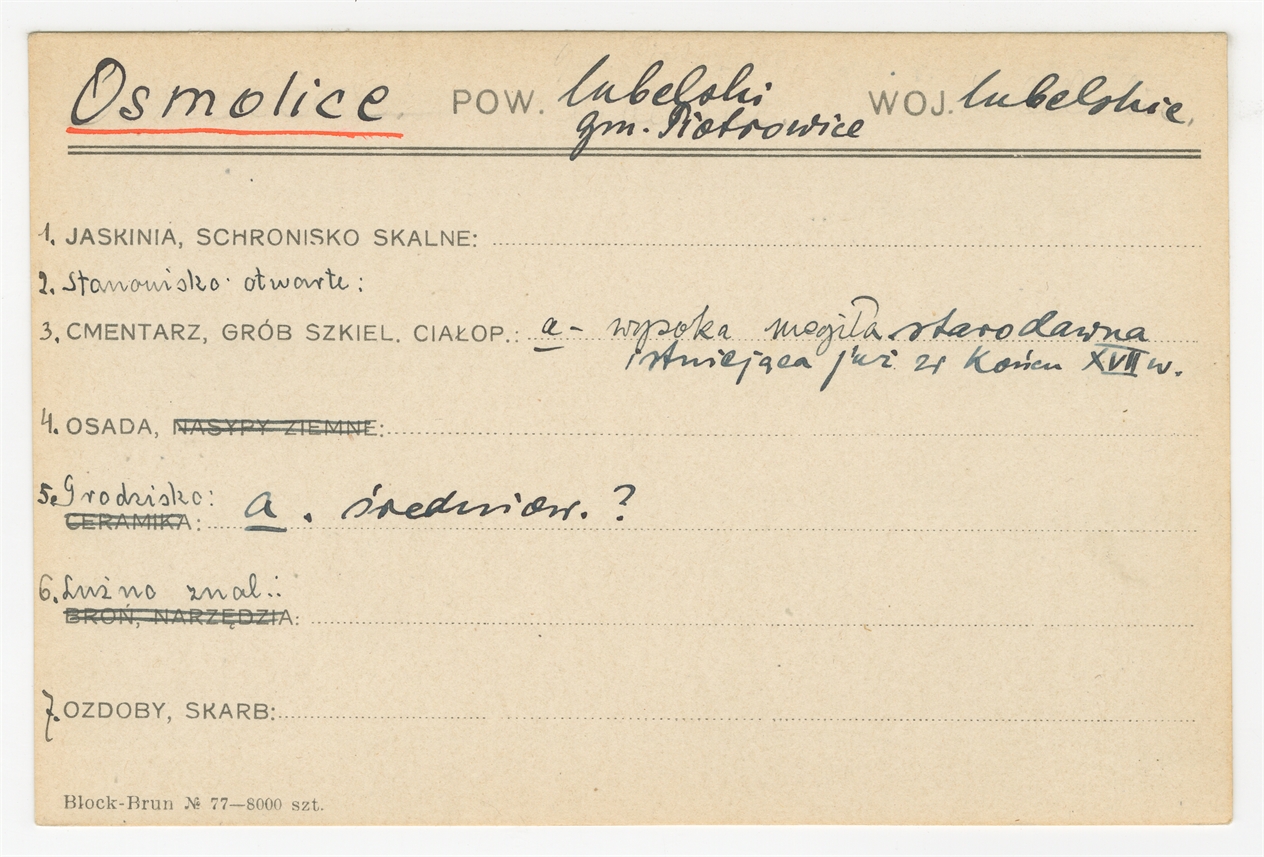 Osmolice POW. lubelski WOJ. lubelskie.
gm. Piotrowice
1. JASKINIA, SCHRONISKO SKALNE:
2. Stanowisko otwarte:
3. CMENTARZ, GRÓB SZKIEL. CIAŁOP.: a - wysoka mogiła starodawna
istniejąca już w końcu XVII w.
4. OSADA, NASYPY ZIEMNE:
5. Grodzisko: a. średniow. ?
CERAMIKA:
6. Luźno znal.:
BROŃ, NARZĘDZIA:
7. OZDOBY, SKARB:
Block-Brun № 77—8000 szt.